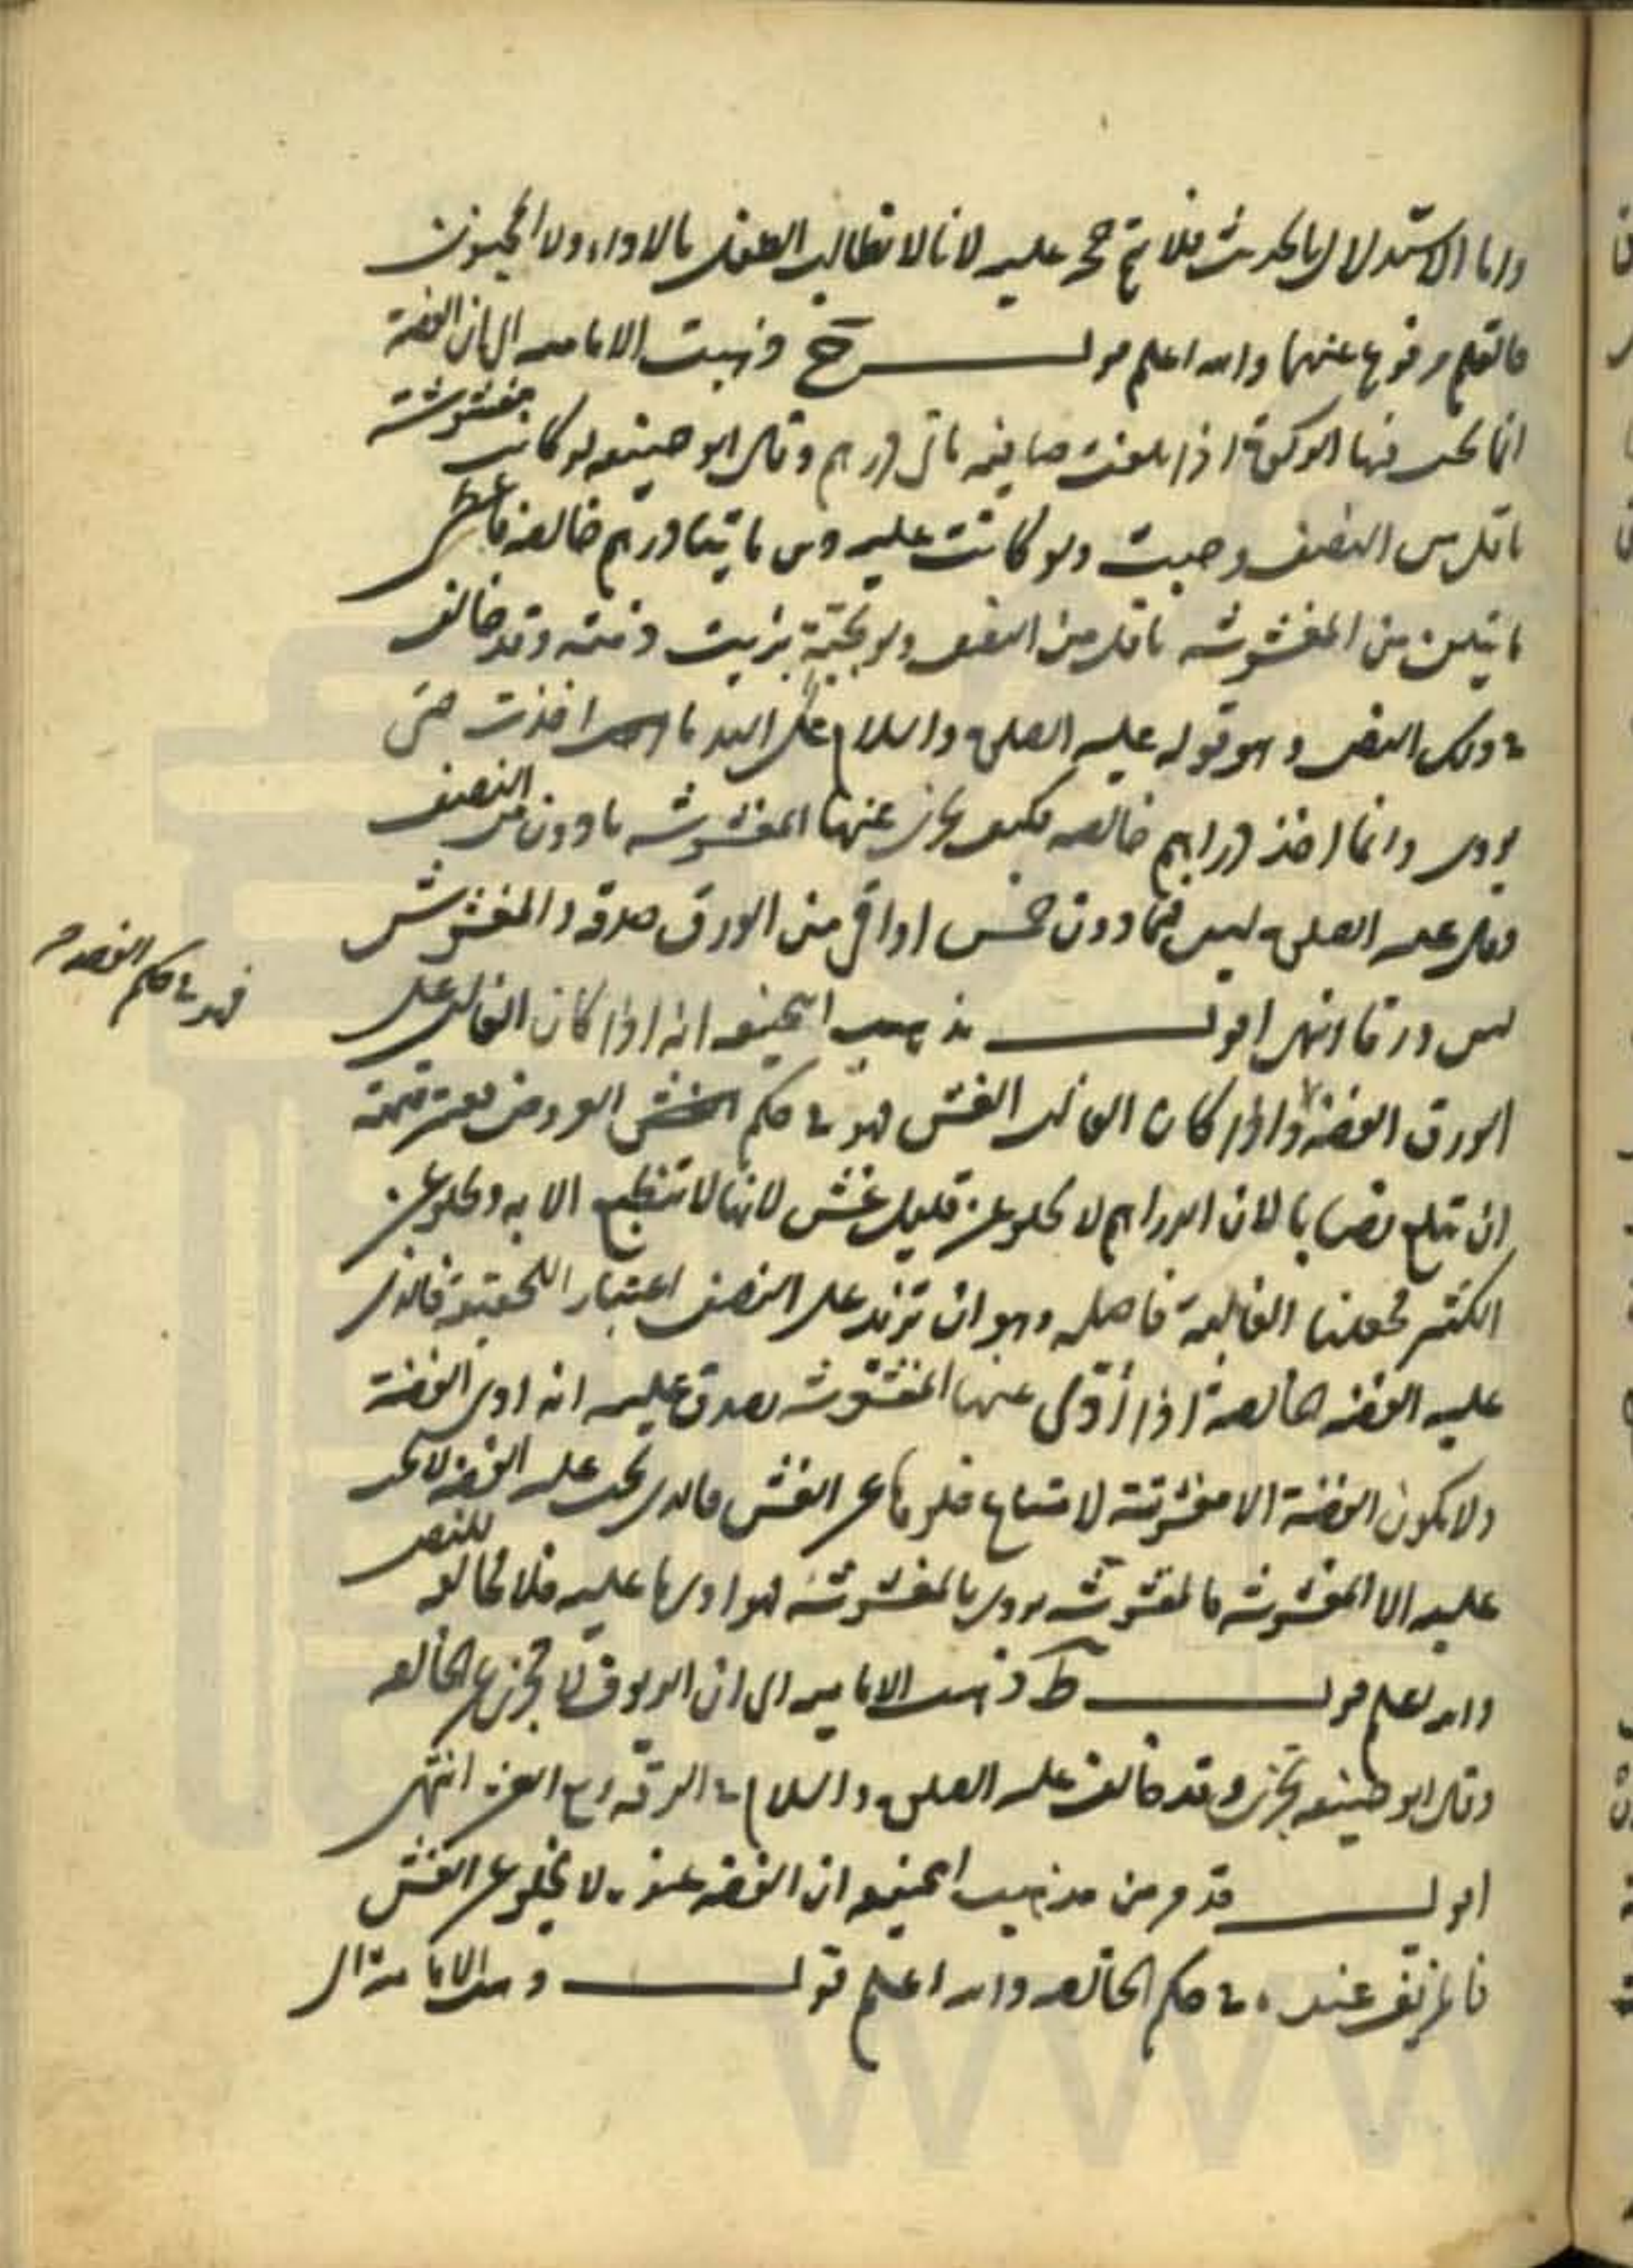 واما الاستدلال بالحديث فلا يتم حجة عليه لانا لا نطالب الطفل بالاداء ولا المجنون
فالقلم مرفوع عنهما والله اعلم قولـــه ح ذهبت الامامية الى ان الفضة
انما تجب فيها الزكوة اذا بلغت صافية مأتى درهم وقال ابو حنيفه لو كانت مغشوشة
باقل من النصف وجبت ولو كانت عليه دين مائتا درهم خالصه فاعطى
مائتين من المغشوشه باقل من النصف ولو بحبة برئت ذمته وقد خالف
في ذلك النص وهو قوله عليه الصلوة والسلام على اليد ما اخذت حتى
يودى وانما اخذ دراهم خالصه فكيف يجزى عنها المغشوشه بادون من النصف
وقال عليه الصلوة ليس فيما دون خمس اواقى من الورق صدقه والمغشوش
ليس ورقا انتهى اقولـــ مذهب ابيحنيفه انه اذا كان الغالب على
الورق الفضة واذا كان الغالب الغش فهو في حكم العروض يعتبر قيمته
ان تبلغ نصابا لان الدراهم لا تخلو عن قليل غش لانها لا تنطبع الا به وتخلو عن
الكثير فجعلنا الغالبة فاصله وهو ان تزيد على النصف اعتبار اللحقيقة فالذى
عليه الفضه الخالصة اذا أدى عنها المغشوشه يصدق عليه انه ادى الفضة
ولا يكون الفضة الا مغشوشة لامتناع خلوها عن الغش فالذى يجب عليه الفضه لا يجب
عليه الا المغشوشه فالمغشوشه يودى بالمغشوشه فهو ادى ما عليه فلا مخالفه للنص
والله اعلم قولـــه ط ذهبت الامامية الى ان الزيوف لا تجزى عن الخالصه
وقال ابو حنيفه تجزى وقد خالف عليه الصلوة والسلام في الرقه ربع العشر انتهى
اقولـــ قد مر من مذهب ابيحنيفه ان الفضه عنده لا يخلو عن الغش
فالمزيف عنده في حكم الخالصه والله اعلم قولـــه ذهبت الامامية الى
فهو في حكم الفضه